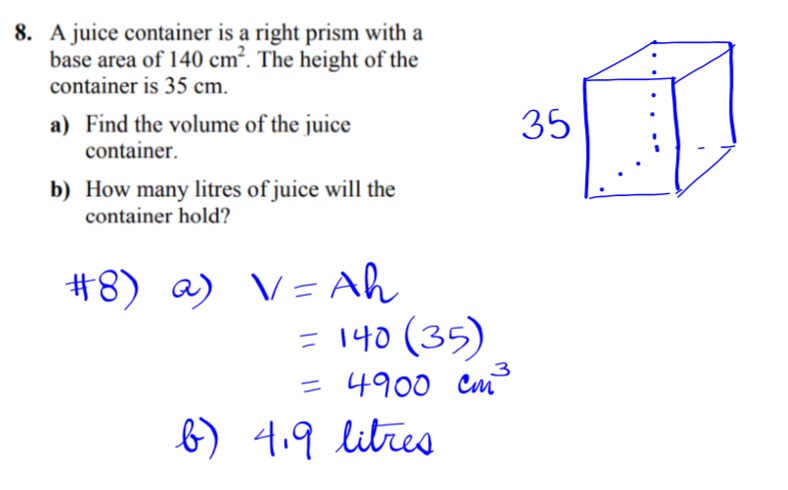 8. A juice container is a right prism with a
base area of 140 cm². The height of the
container is 35 cm.
a) Find the volume of the juice
container.
b) How many litres of juice will the
container hold?
35
#8) a) V = Ah
= 140 (35)
= 4900 cm³
b) 4.9 litres